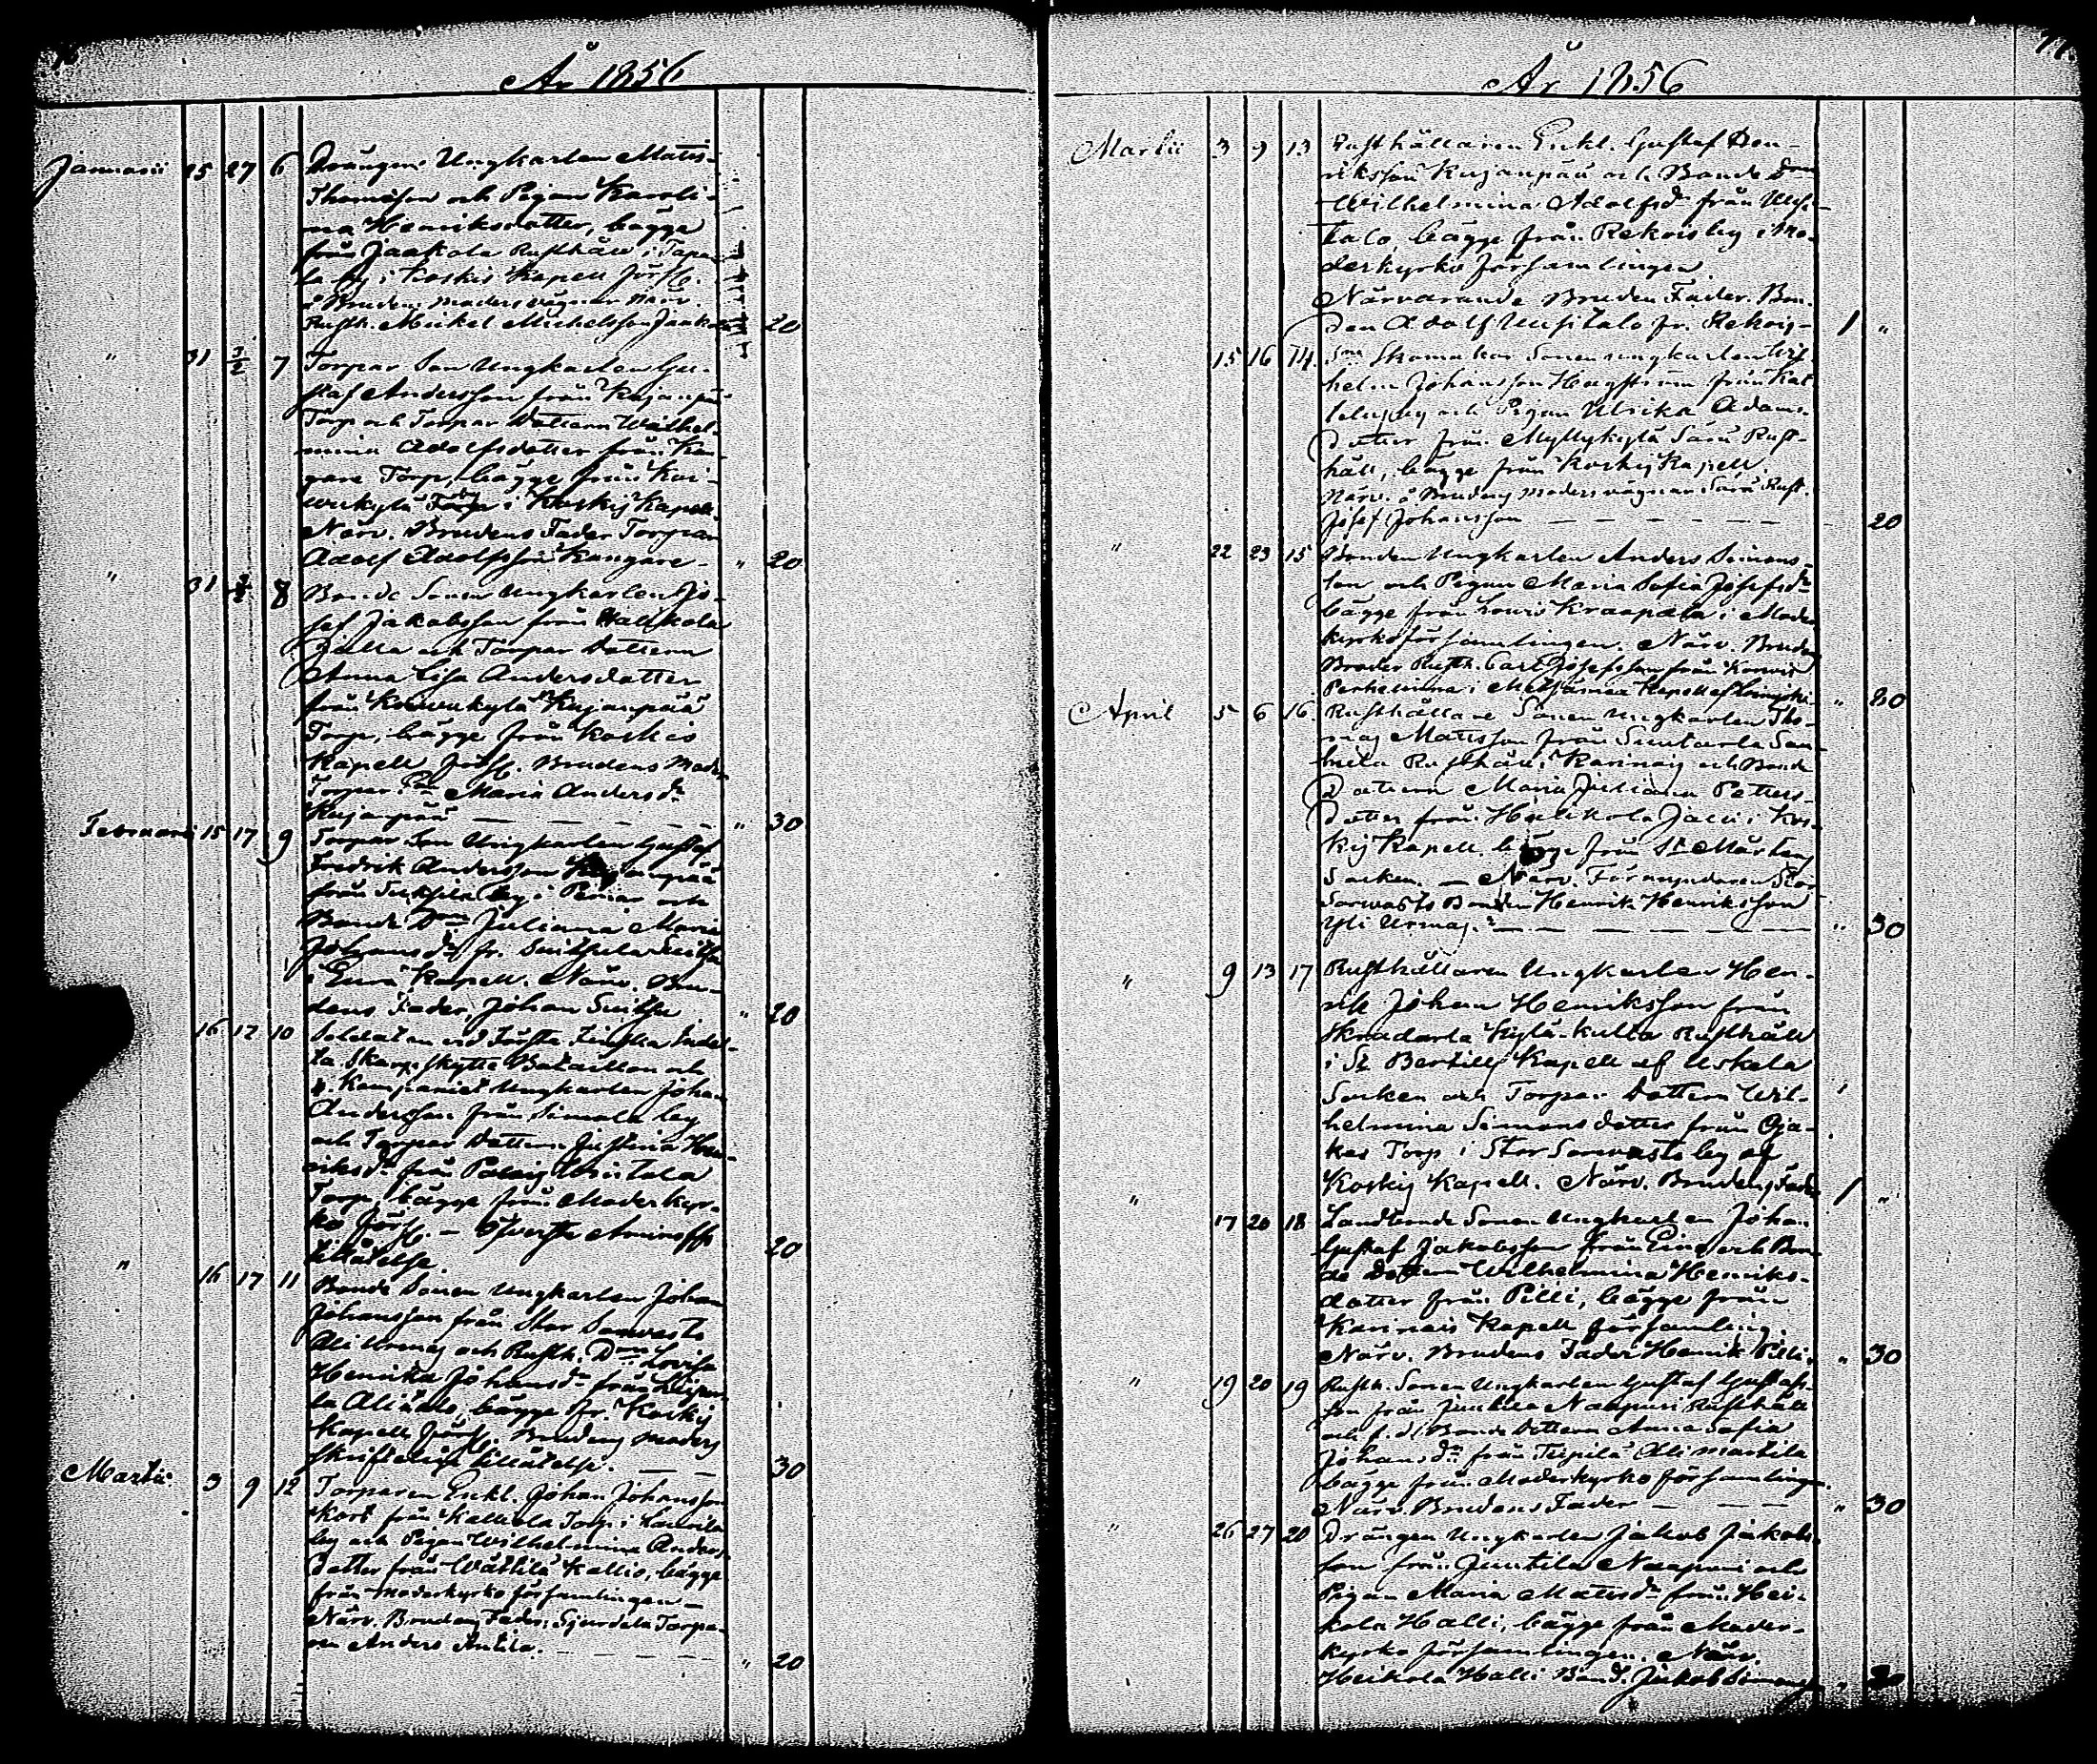 År 1856
Januarii 25 27 6 Drängen Ungkarlen Matts
Thomasson och Pigan Karoli-
na Henriksdotter, bägge
från Jaakola Rusthåll i Tapa-
la by i Koskis Kapell Förs.
å Brudens moders vägnar närv.
Rusth. Mickel Michelsson Jaakola 20
" 31 3/2 7 Torpar Son Ungkarlen Gu-
staf Andersson från Kujanpää
Torp och Torpar Dottern Wilhel-
mina Adolfsdotter från Kan-
gare Torp, bägge från Koi-
wukylä by i Koskis Kapell.
Närv. Brudens Fader Torparn
Adolf Adolfsson Kangare - " 20
" 31 3/2 8 Bonde Sonen Ungkarlen Jo-
sef Jakobsson från Halikola
Jalla och Torpar Dottern
Anna Lisa Andersdotter
från Koiwukylä Kujanpää
Torp, bägge från Koskis
Kapell Förs. Brudens Moder
Torpar Maria Andersdr
Kujanpää " 30
Februarii 15 17 9 Torpar Son Ungkarlen Gustaf
Fredrik Andersson Kujanpää
från by i Pemar och
Bonde Drn Juliana Maria
Johansdr fr.
i Eura Kapell. Närv. Bru-
dens Fader, Johan " 20
16 17 10 Soldaten vid Första Finska Indel-
ta Skarpskytte Bataillon och
Kompaniet Ungkarlen Johan
Andersson från by
och Torpar Dottern Justina Hen-
riksdr från
Torp, bägge från Moderkyr-
ko Förs. - Öfverste Aminoffs
tillåtelse. 20
" 16 17 11 Bonde Sonen Ungkarlen Johan
Johansson från Stor Sorvasto
Ali Urmas och Rusth. Drn Lovisa
Henrika Johansdr från
Alitalo, bägge fr. Koskis
Kapell Förs. Brudens Moders
skriftliga tillåtelse. 30
Martii 3 9 12 Torparen Enkl. Johan Johansson
Kort från Kallela Torp i
by och Pigan Wilhelmina Anders
Dotter från Wättilä Kallio, bägge
från Moderkyrko församlingen -
Närv. Brudens Fader, Torpa-
ren Anders Antila. " 20
År 1856
Martii 3 9 13 Rusthållaren Enkl. Gustaf Hen-
riksson Kujanpää och Bonde Drn
Wilhelmina Adolfsdr från Uusi-
talo, bägge från Rekois by i Mo-
derkyrko församlingen.
Närvarande Bruden Fader Bon-
den Adolf Uusitalo fr. Rekois- 1 "
15 16 14 Skomakar Sonen ungkarlen Wil-
helm Johansson Hagström från
by och Pigan Ulrika Adams-
dotter från Myllykylä Särä Rust-
håll, bägge från Koskis Kapell.
Närv. å Brudens Moders vägnar Särä Rust.
Josef Johansson 20
" 22 23 15 Bonden Ungkarlen Anders Simons-
son och Pigan Maria Sofia Josefsdr
bägge från Kraapala i Moder
kyrkoförsamlingen. Närv. Brudens
Broder Rusth. Carl Josefsson från
i Kapell af " 20
April 5 6 16 Rusthållare Sonen Ungkarlen Tho-
mas Matsson från
Rusthåll i Karinais och Bonde
Dottern Maria Juliana Petters-
dotter från Halikola i Kos-
kis Kapell, bägge från St Mårtens
Socken. - Närv. Förmyndaren Stor
Sorvasto Bonden Henrik Henriksson
Yli Urmas. " 30
" 9 13 17 Rusthållaren Ungkarlen Hen-
rik Johan Henriksson från
Kylä-kulta Rusthåll
i St Bertills Kapell af Uskela
Socken och Torpar Dottern Wil-
helmina Simonsdotter från Oja-
kas Torp i Stor Sorvasto by af
Koskis Kapell. Närv. Brudens Fader 1 "
" 17 20 18 Landbonde Sonen Ungkarlen Johan
Gustaf Jakobsson från och Bon-
de Dottern Wilhelmina Henriks-
dotter från Pilli, bägge från
Karinais Kapell församling.
Närv. Brudens Fader Henrik Pilli. " 30
" 19 20 19 Rusth. Sonen Ungkarlen Gustaf Gustafs-
son från Juntila Naapuri Rusthåll
och f. d. Bonde Dottern Anna Sofia
Johansdr från Teipilä Alimartila
bägge från Moderkyrko församlingen.
Närv. Brudens Fader " 30
" 26 27 20 Drängen Ungkarlen Jakob Jakobs-
son från Juntila Naapuri och
Pigan Maria Matsdr från Hei-
kola Halli, bägge från Moder-
kyrko församlingen. Närv.
Heikola Halli Bond. Jakob Simonss "